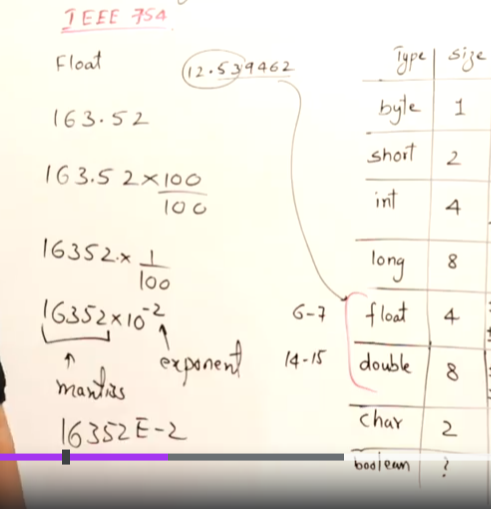 IEEE 754
Float
12.539462
163.52
163.52×100
100
16352×1
100
16352×10-2
exponent
mantiss
16352E-2
Type size
byte 1
short 2
int 4
long 8
6-7 float 4
14-15 double 8
char 2
boolean ?